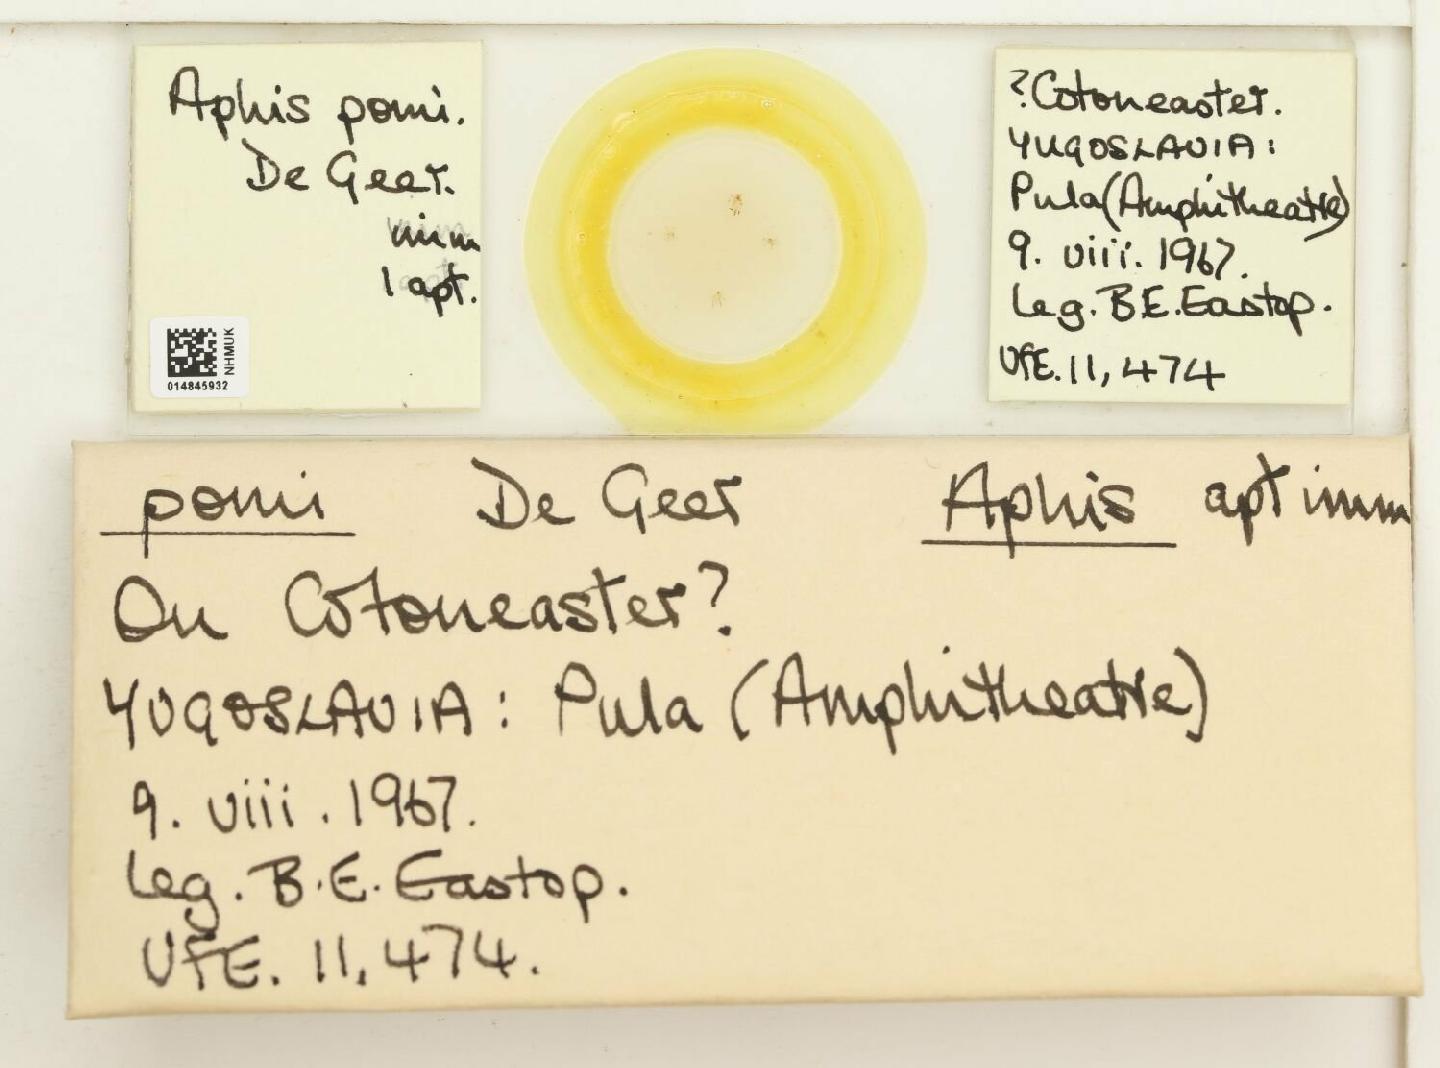 Aphis pomi.
De Geer.
imm
1 apt.
NHMUK
014845932
?Cotoneaster.
YUGOSLAVIA:
Pula (Amphitheatre)
9. viii. 1967.
Leg. B.E. Eastop.
VFE. 11,474
pomi De Geer Aphis apt imm
On Cotoneaster?
YUGOSLAVIA: Pula (Amphitheatre)
9. viii. 1967.
Leg. B.E. Eastop.
VFE. 11,474.